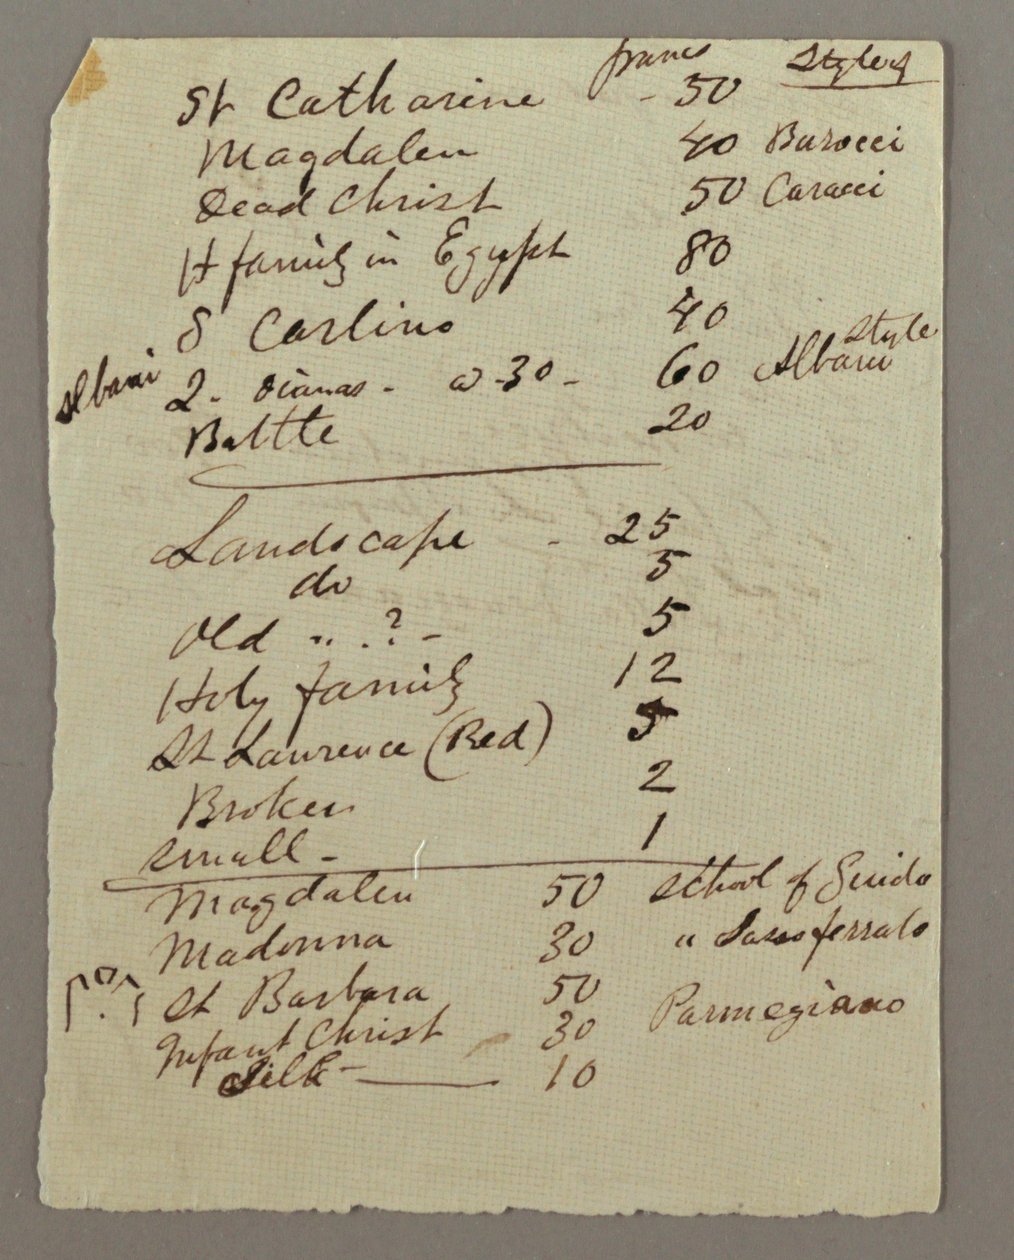 francs Style of
St Catharine - 50
Magdalen 40 Barocci
Dead Christ 50 Caracci
H family in Egypt 80
S Carlino 40
Style
Albani 2 - Dianas - @ 30 - 60 Albani
Battle 20
Landscape - 25
do 5
Old " . ? - 5
Holy family 12
St Laurence (Red) 5
Broken 2
Small - 1
Magdalen 50 School of Guido
Madonna 30 " Sassoferrato
St Barbara 50
Infant Christ 30 Parmegiano
Silk - 10